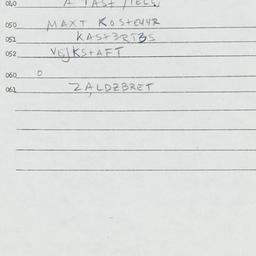 040
050 MAXT KOSTEUUR
051 KASTBRTBS
052 VEJKSTAFT
060 O
061 ZALDZBRET